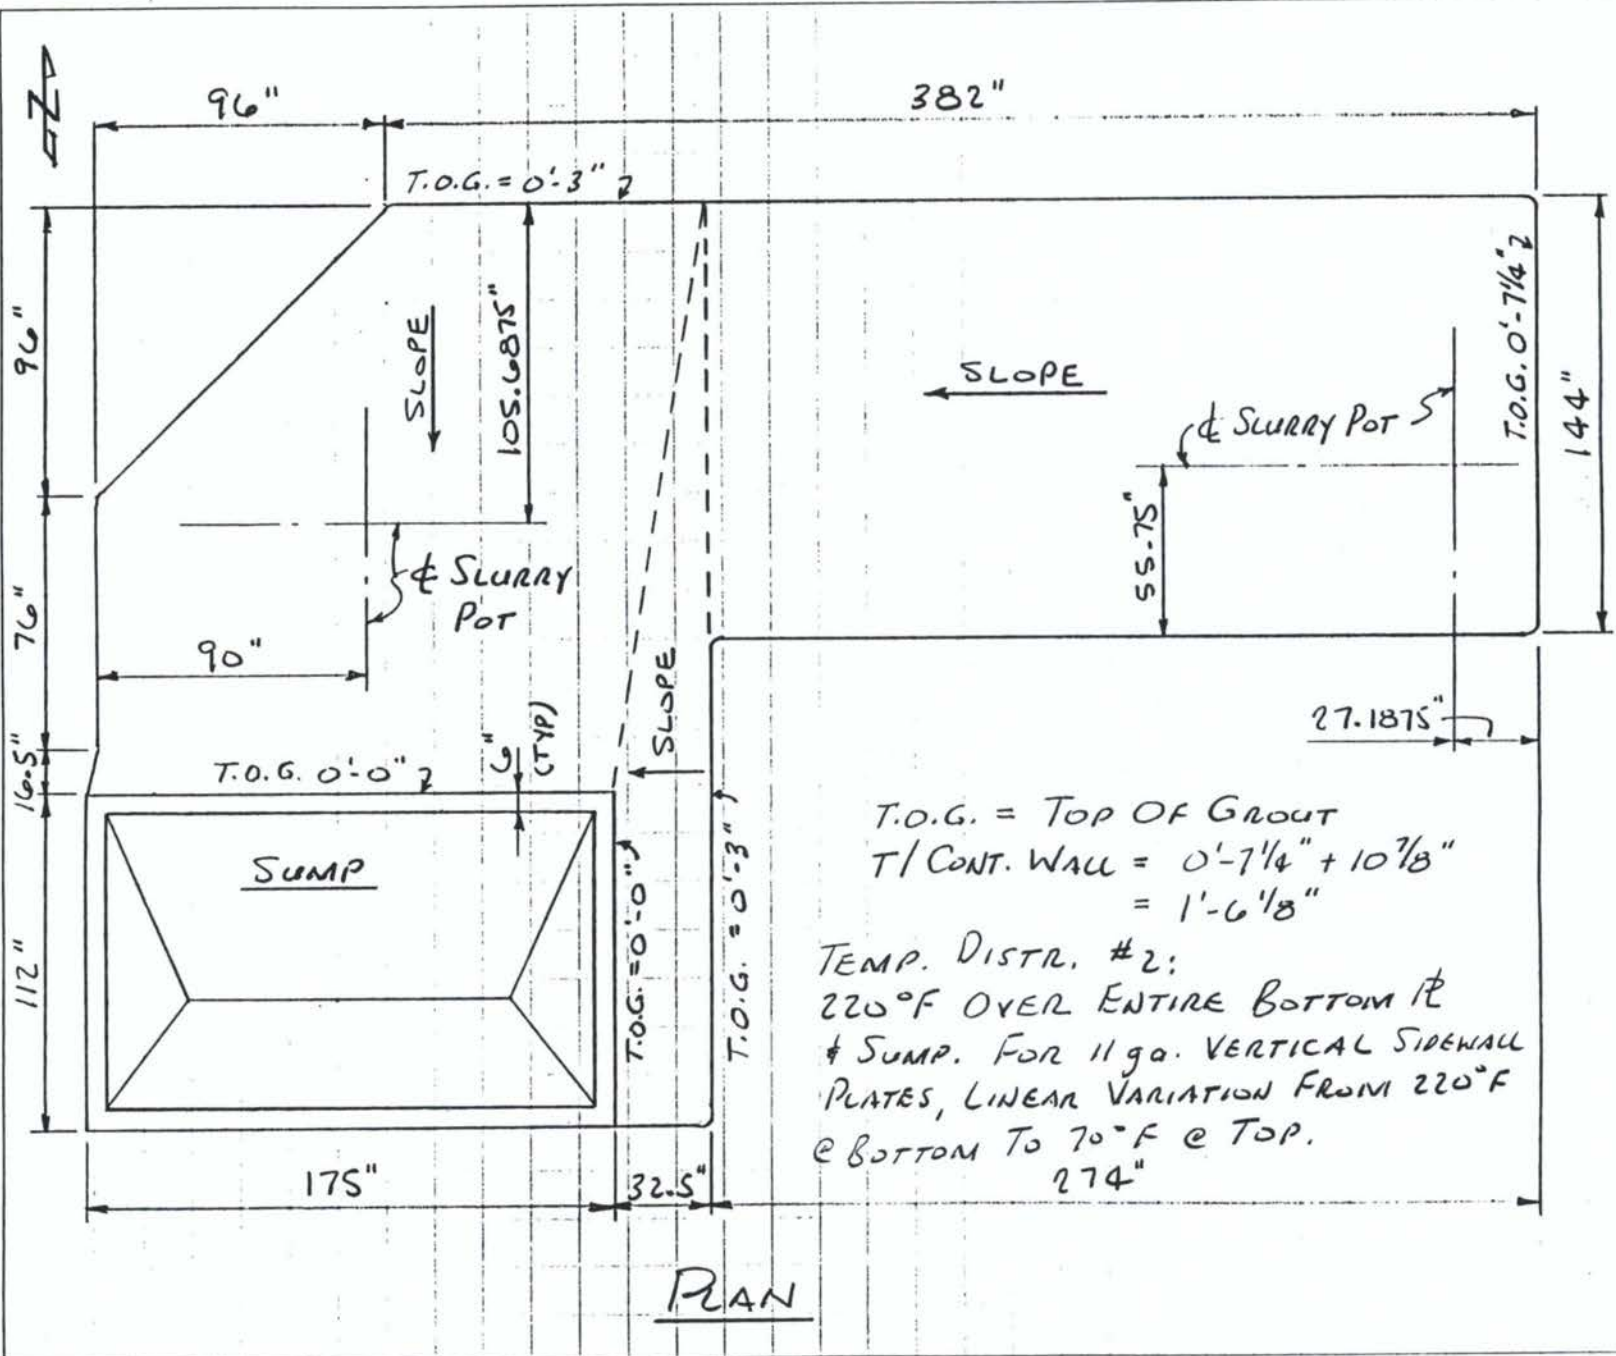 N
96"
382"
T.O.G. = 0'-3"
96"
SLOPE
105.6875"
SLOPE
T.O.G. 0'-7 1/4"
144"
℄ SLURRY POT
55.75"
℄ SLURRY
POT
76"
90"
SLOPE
27.1875"
16.5"
T.O.G. 0'-0"
6"
(TYP)
SUMP
112"
T.O.G. = 0'-0"
T.O.G. = 0'-3"
T.O.G. = TOP OF GROUT
T/CONT. WALL = 0'-7 1/4" + 10 7/8"
= 1'-6 1/8"
TEMP. DISTR. #2:
220°F OVER ENTIRE BOTTOM ℄
& SUMP. FOR 11 ga. VERTICAL SIDEWALL
PLATES, LINEAR VARIATION FROM 220°F
@ BOTTOM TO 70°F @ TOP.
175"
32.5"
274"
PLAN